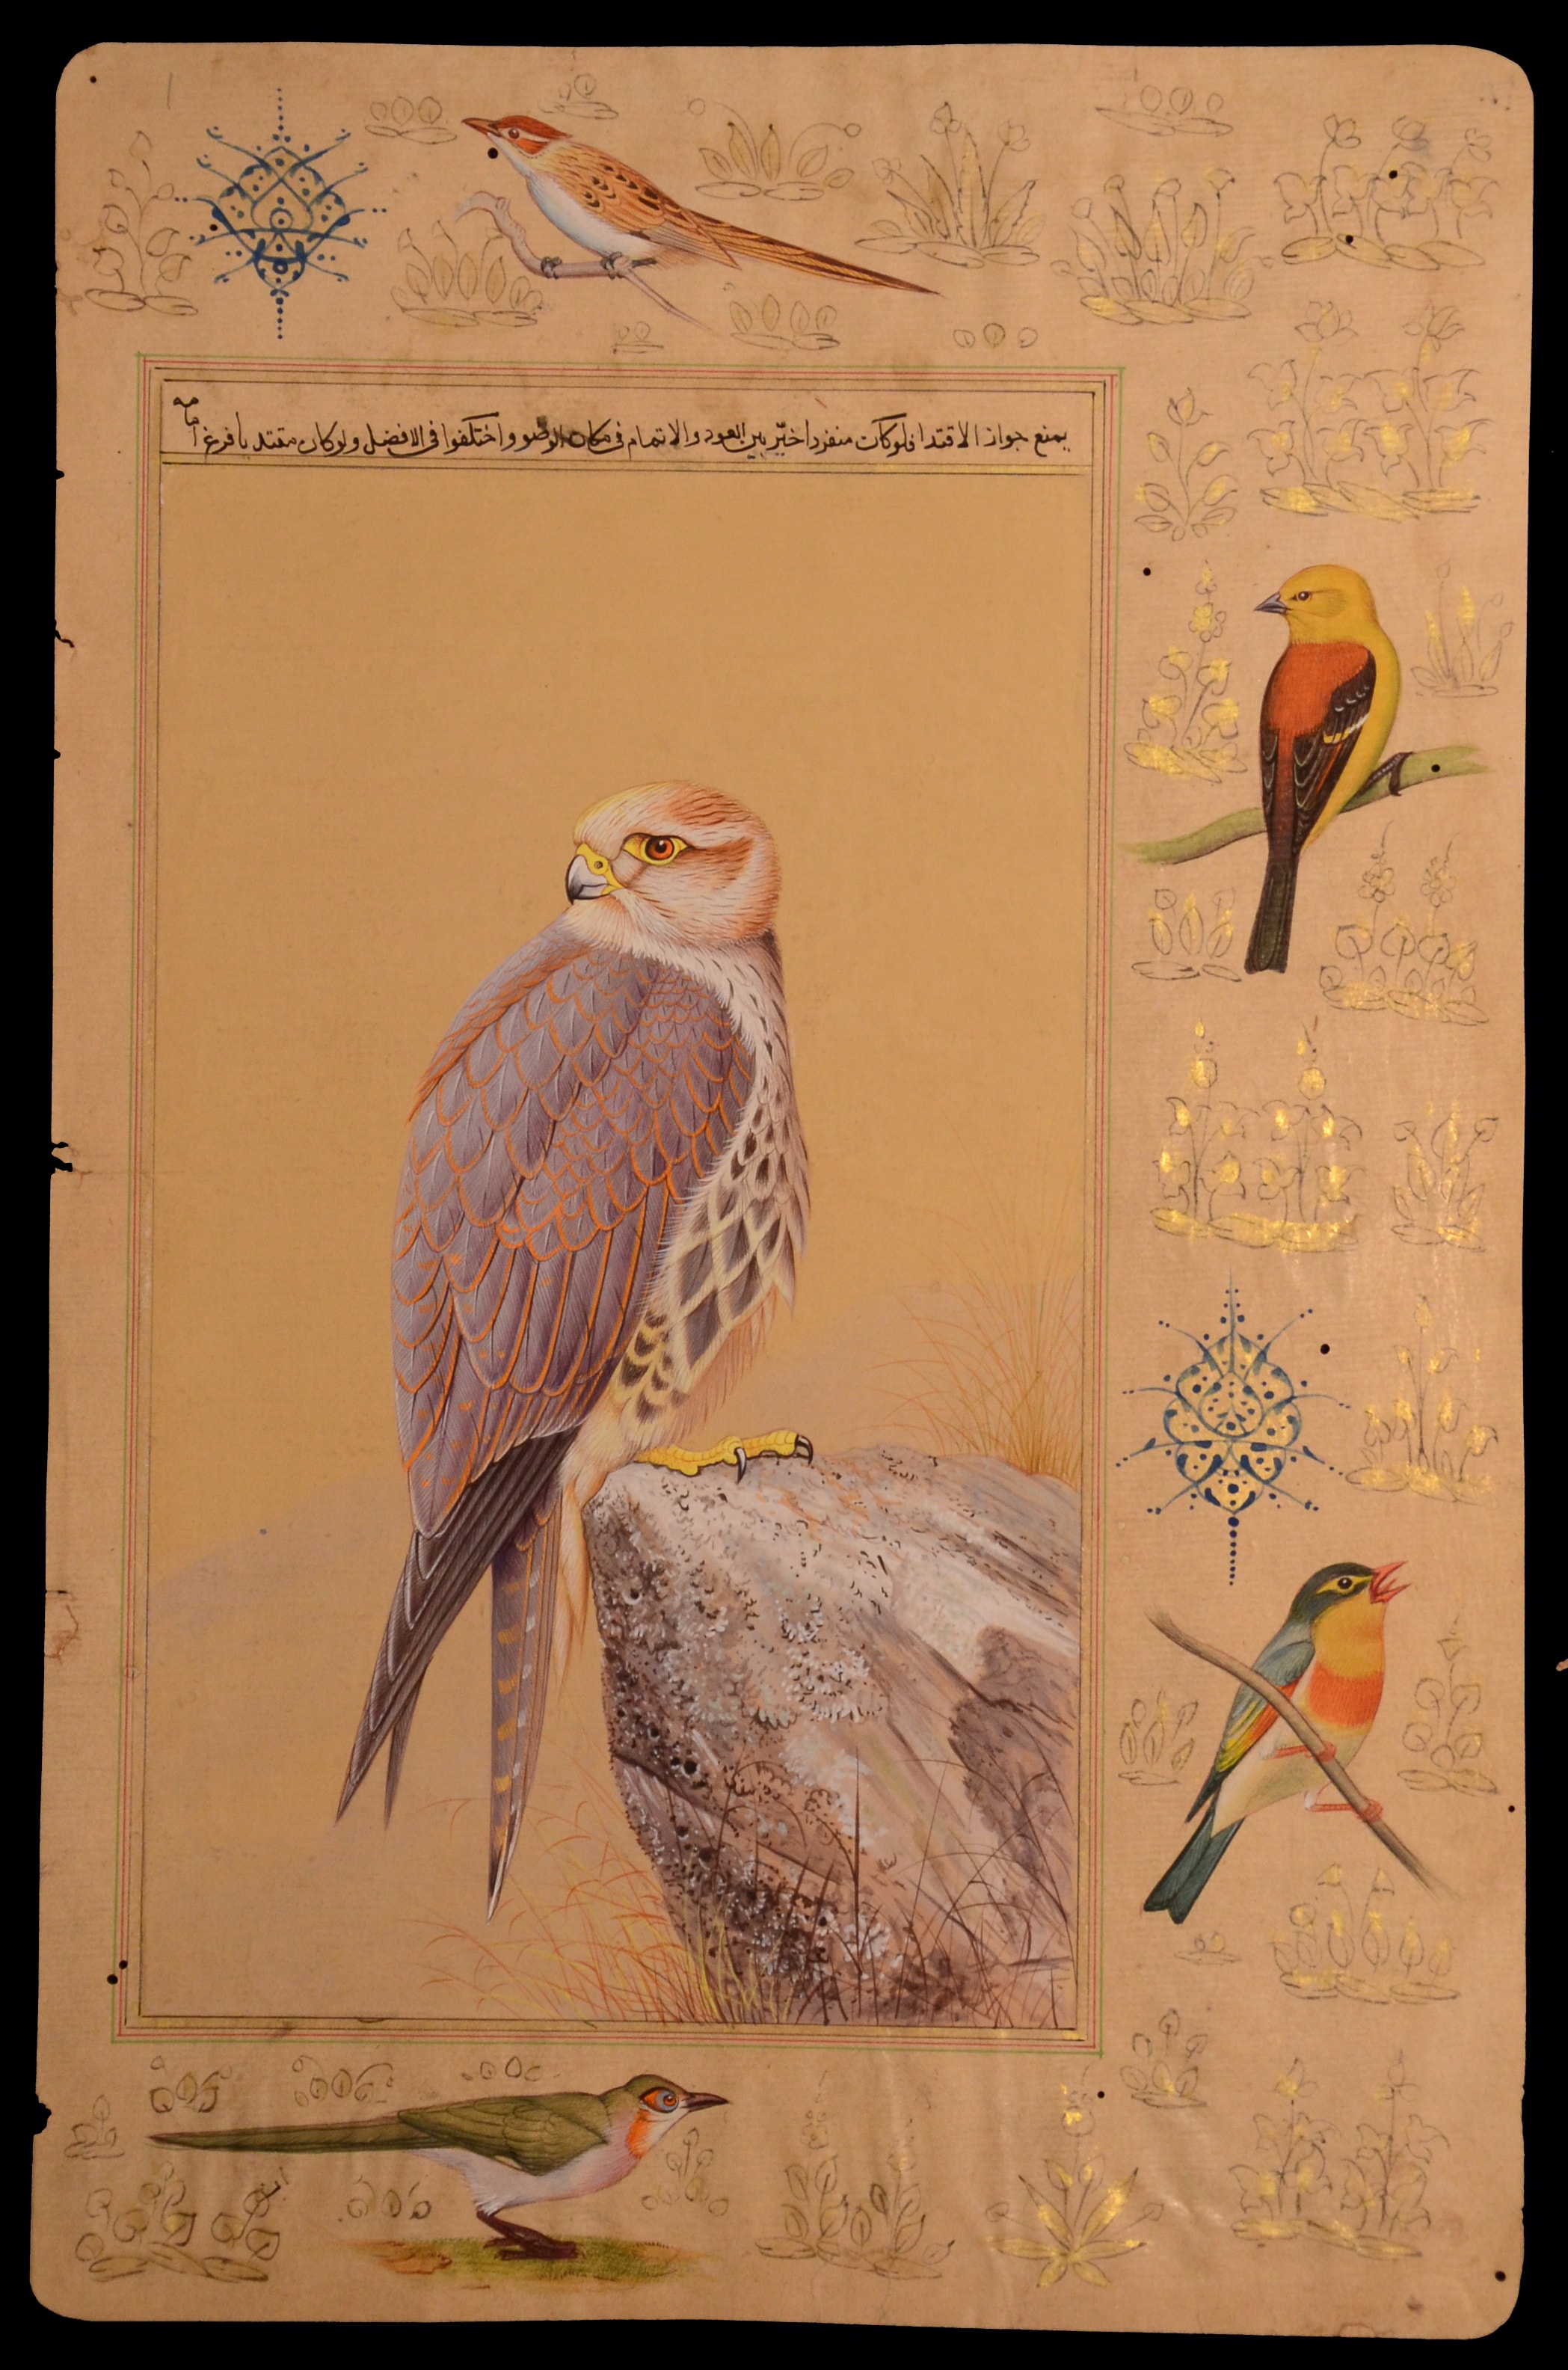 يمنع جواز الاقتدا فلوكان منفردا خيّر بين العود والاتمام فى مكان الوضو واختلفوا فى الافضل ولوكان مقتديا فرغ امامه